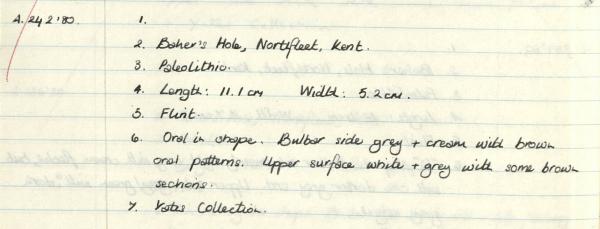 A. 242'80. 1.
2. Baker's Hole, Northfleet, Kent.
3. Paleolithic.
4. Length: 11.1cm Width: 5.2cm.
5. Flint.
6. Oval in shape. Bulbar side grey + cream with brown
oval patterns. Upper surface white + grey with some brown
sections.
7. Yates Collection.